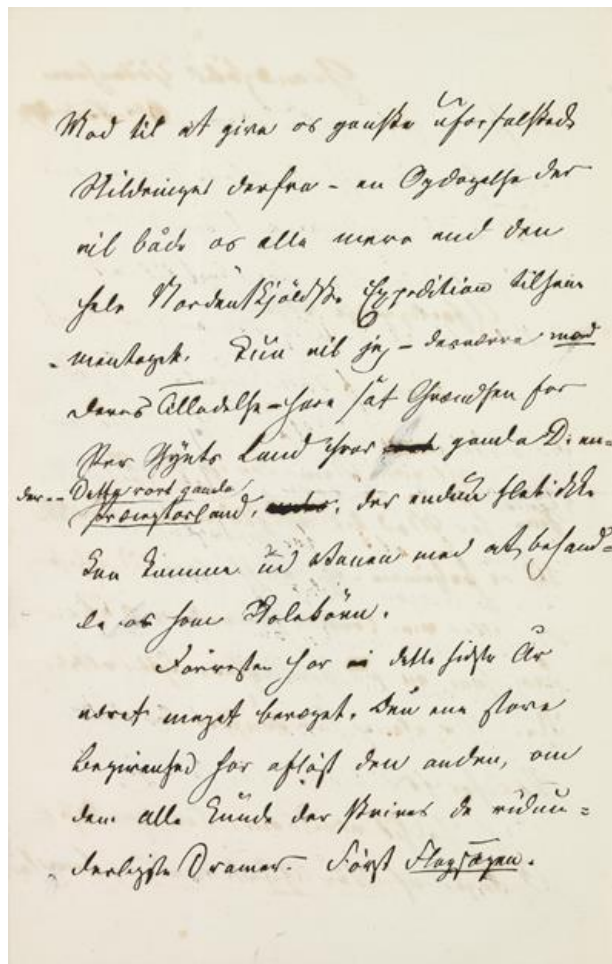 Mod til at give os ganske uforfalskede
Skildringer derfra – en Opdagelse der
vil både os alle mere end den
hele Nordenskjöldske Expedition tilsam-
mentaget. Kun vil jeg – desværre med
Deres Tilladelse – have sat Grændsen for
Per Gynts Land hvor gamle D: en-
der – Dette vort gamle
Præstorland, der endnu slet ikke
kan komme ud Vanen med at behand-
le os som Skolebörn.
Forresten har vi dette sidste År
været meget bevæget. Den ene store
Begivenhed har aflöst den anden, om
dem alle kunde der skrives de vidun-
derligste Dramer. Först Flagsagen.